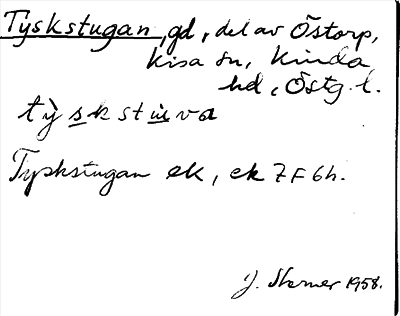 Tyskstugan, gd, del av Östorp,
Kisa sn, Kinda
hd, Östg. l.
tỳskstùva
Tyskstugan ek, ek 7F6h.
J. Sterner 1958.